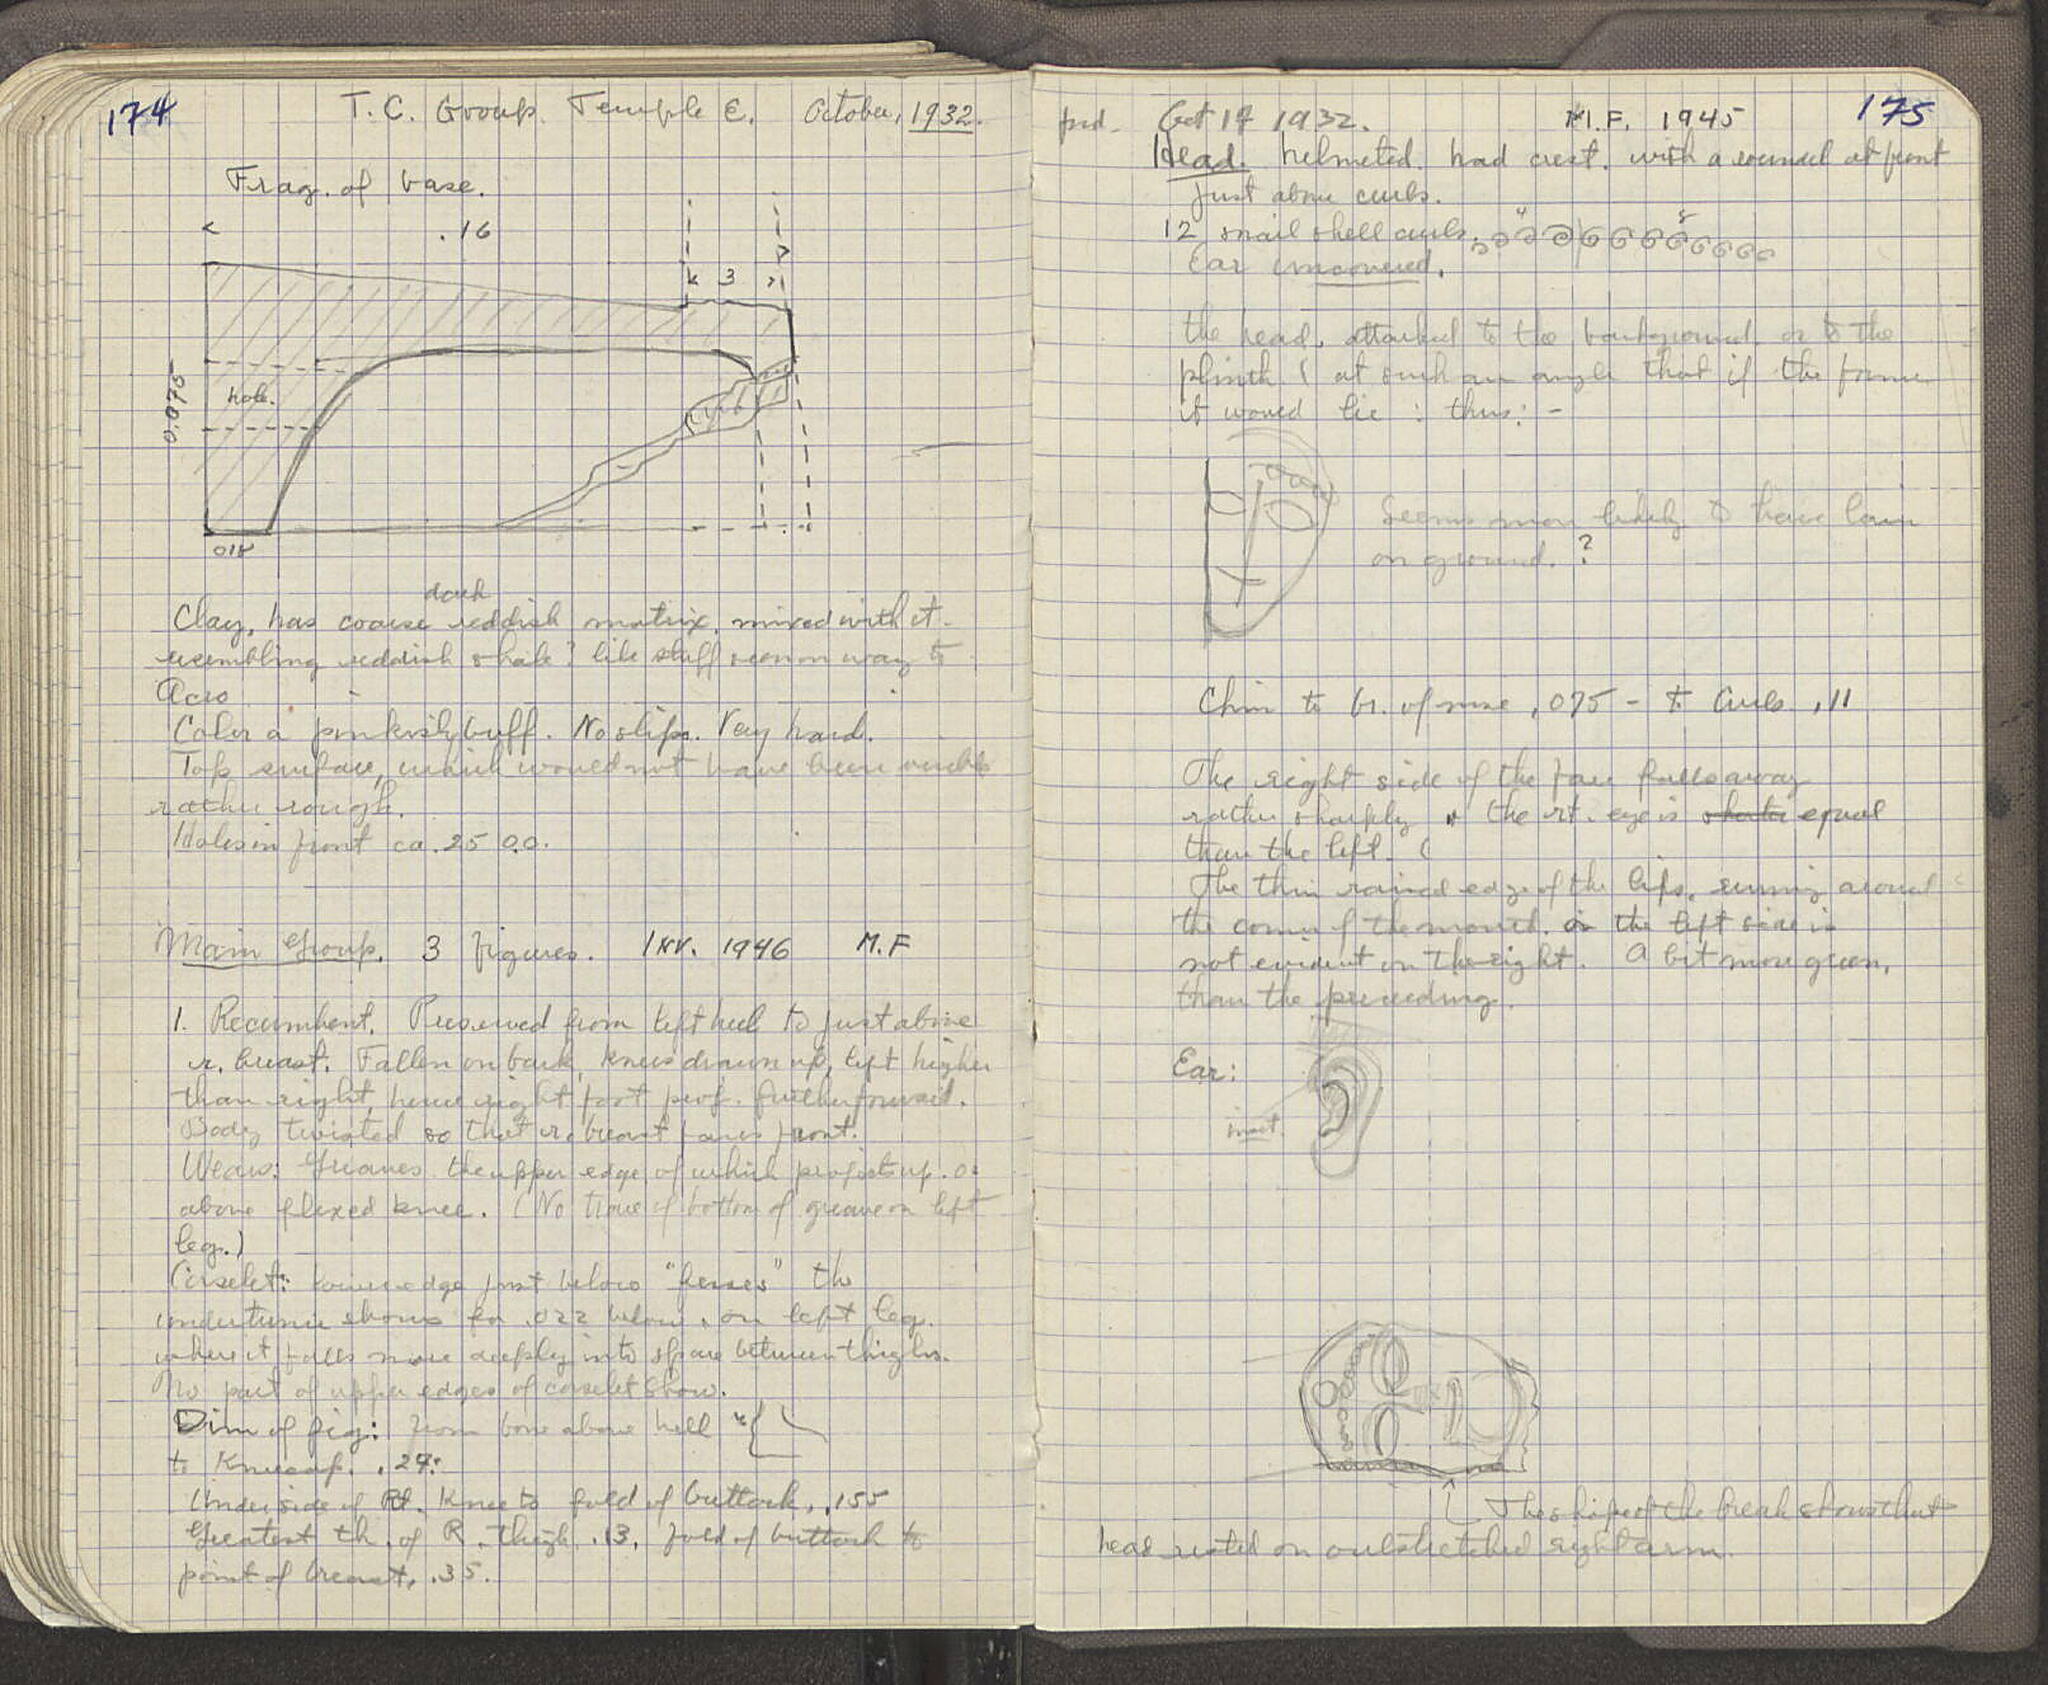 174
T. C. Group. Temple E. October, 1932.
Frag. of base.
.16
3
0.075
hole.
018
dark
Clay, has coarse reddish matrix, mixed with it
resembling reddish shale? like stuff seen on way to
Acro
Color a pinkish buff. No slip. Very hard.
Top surface, which would not have been visible
rather rough.
Holes in front ca. 25
Main Group. 3 figures. Inv. 1946 M.F
1. Recumbent. Preserved from left heel to just above
r. breast. Fallen on back, knees drawn up, left higher
than right, hence right foot further forward.
Body twisted so that r. breast faces front.
Wears: Greaves the upper edge of which projects up
above flexed knee. (No trace of bottom of greave on left
leg.)
Corselet: lower edge just below the
undertunic shows for .022 below, on left leg.
where it falls more deeply into space between thighs.
No part of upper edges of corselet show.
Dim of fig: from bone above heel
to Kneecap. .24:
Underside of Rt. Knee to fold of buttock, .155
Greatest th. of R. thigh .13, fold of buttock to
point of breast, .35.
175
Oct 17 1932. M.F. 1945
Head. helmeted. had crest. with a roundel at front
just above curls.
12 snail shell curls.
4 8
Ear uncovered.
the head, attached to the background or to the
plinth at such an angle that if the former
it would lie : thus: -
Seems more likely to have lain
on ground. ?
Chin to br. of nose ,075 - to Curls ,11
The right side of the face falls away
rather sharply & the rt. eye is shorter equal
than the left. (
The thin raised edge of the lips, running around
the corner of the mouth. on the left side is
not evident on the right. A bit more green,
than the preceding.
Ear:
The shape of the break shows that
head rested on outstretched right arm.